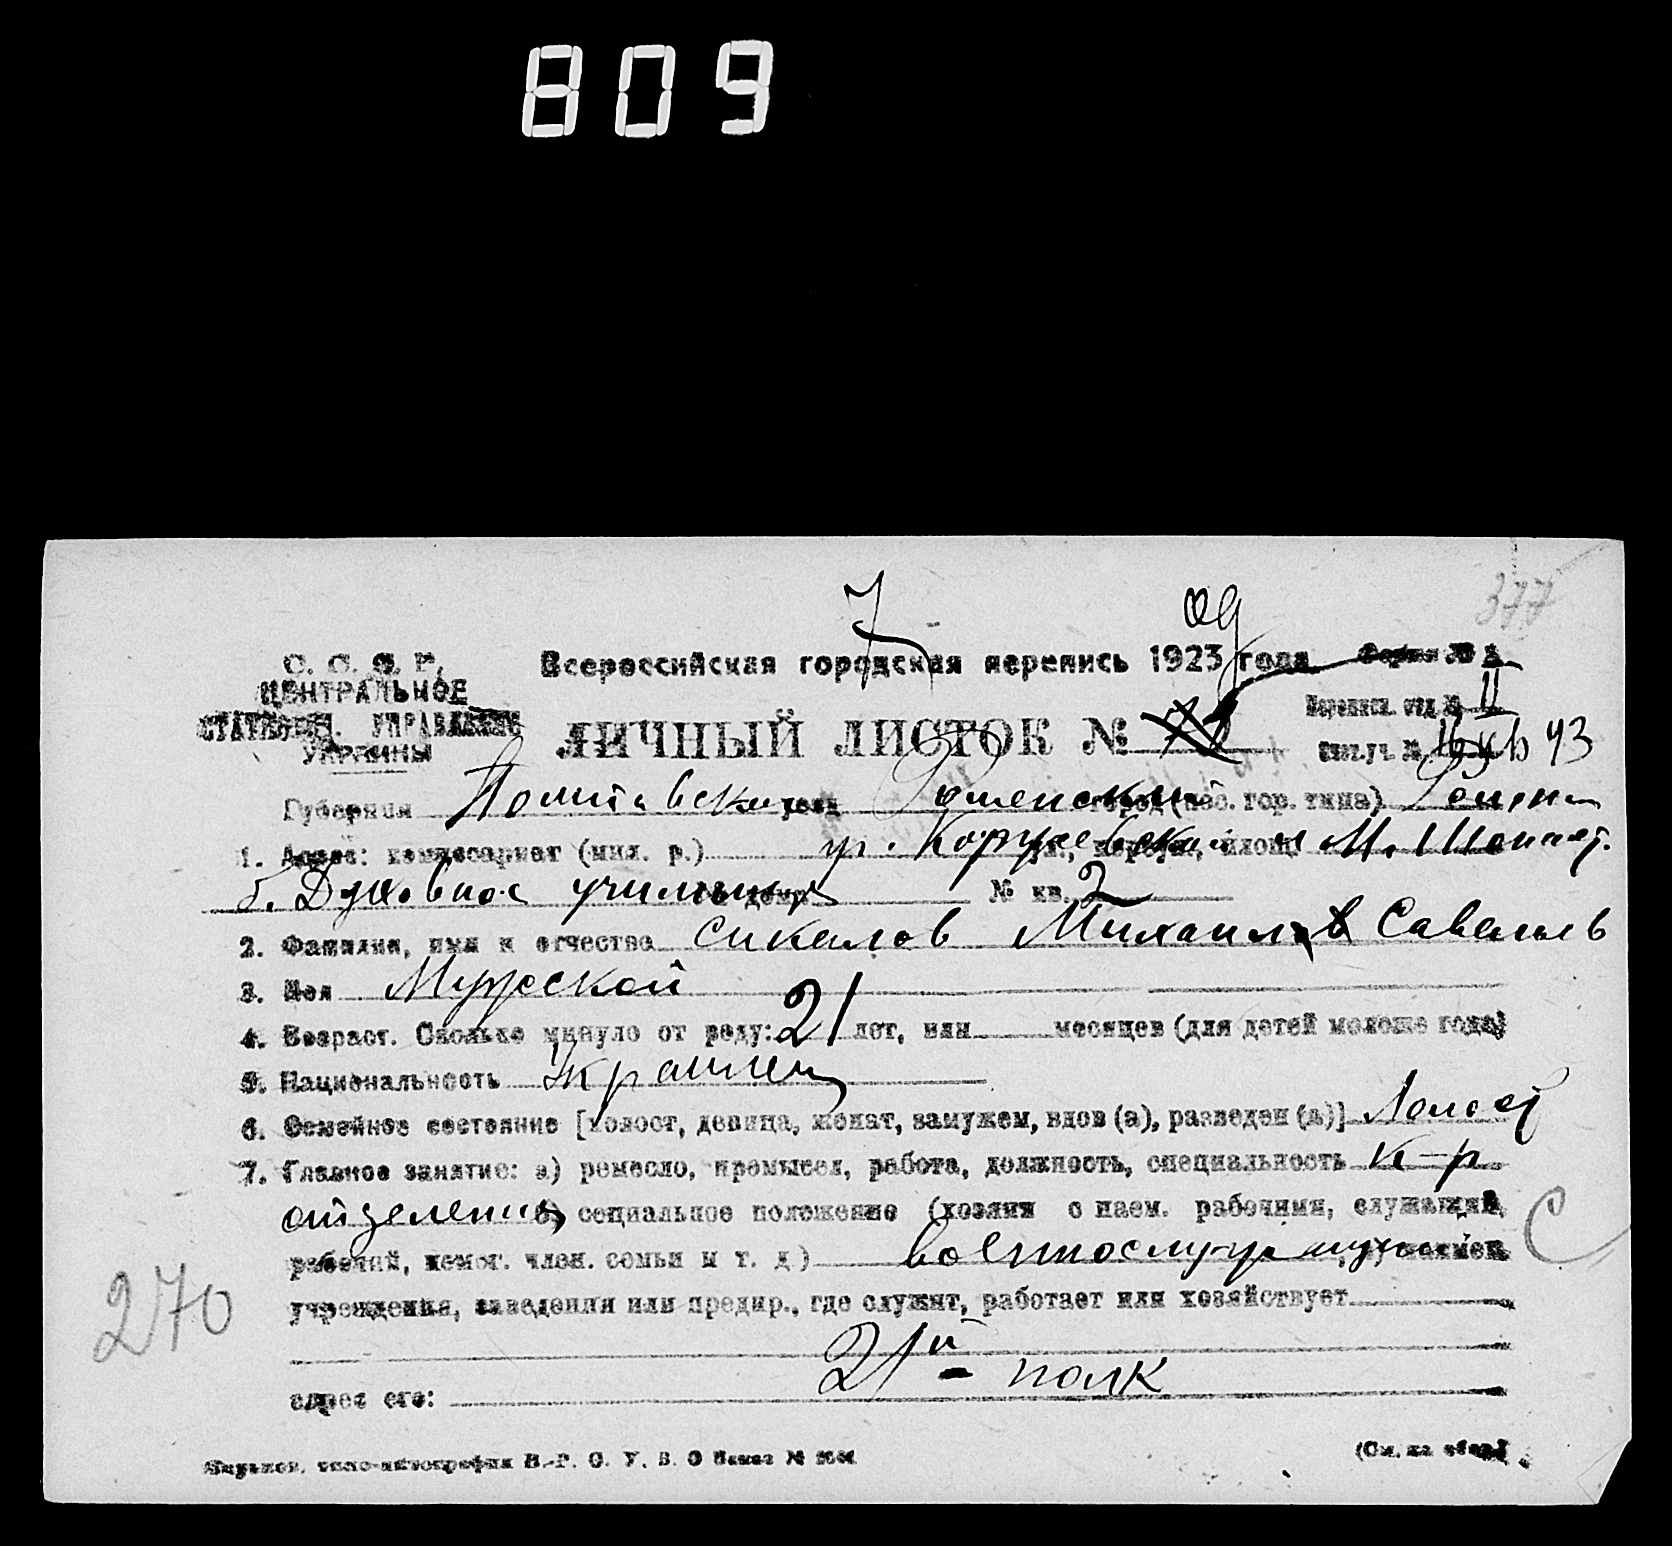 809
377
7 09
С. С. С. Р.
ЦЕНТРАЛЬНОЕ
СТАТИСТИЧ. УПРАВЛЕНИЕ
УКРАИНЫ
Всероссийская городская перепись 1923 года Форма № А
ЛИЧНЫЙ ЛИСТОК №
Переписн. отд. № II
Счет.уч. № 43
Губерния Полтавская уезд Роменский город (пос. гор. типа) Ромны
1. Адрес: комиссариат (мил. р.) ул., переул., площ.
б. Духовное № кв. 2
2. Фамилия, имя и отчество Сикалов Михаил Савельев
3. Пол Мужской
4. Возраст. Сколько минуло от роду: 21 лет, или месяцев (для детей моложе года)
5. Национальность Украинец
6. Семейное состояние [холост, девица, женат, замужем, вдов (а), разведен (а)] Холост
7. Главное занятие: а) ремесло, промысел, работа, должность, специальность к-р
отделения б) социальное положение (хозяин с наем. рабочими, служащий,
рабочий, помог. член. семьи и т. д.) военнослужащий
учреждения, заведения или предпр., где служит, работает или хозяйствует
21й полк
адрес его:
270
С
Харьков. типо-литография В.-Р. С. У. В. О Заказ №
(См. на обор.)